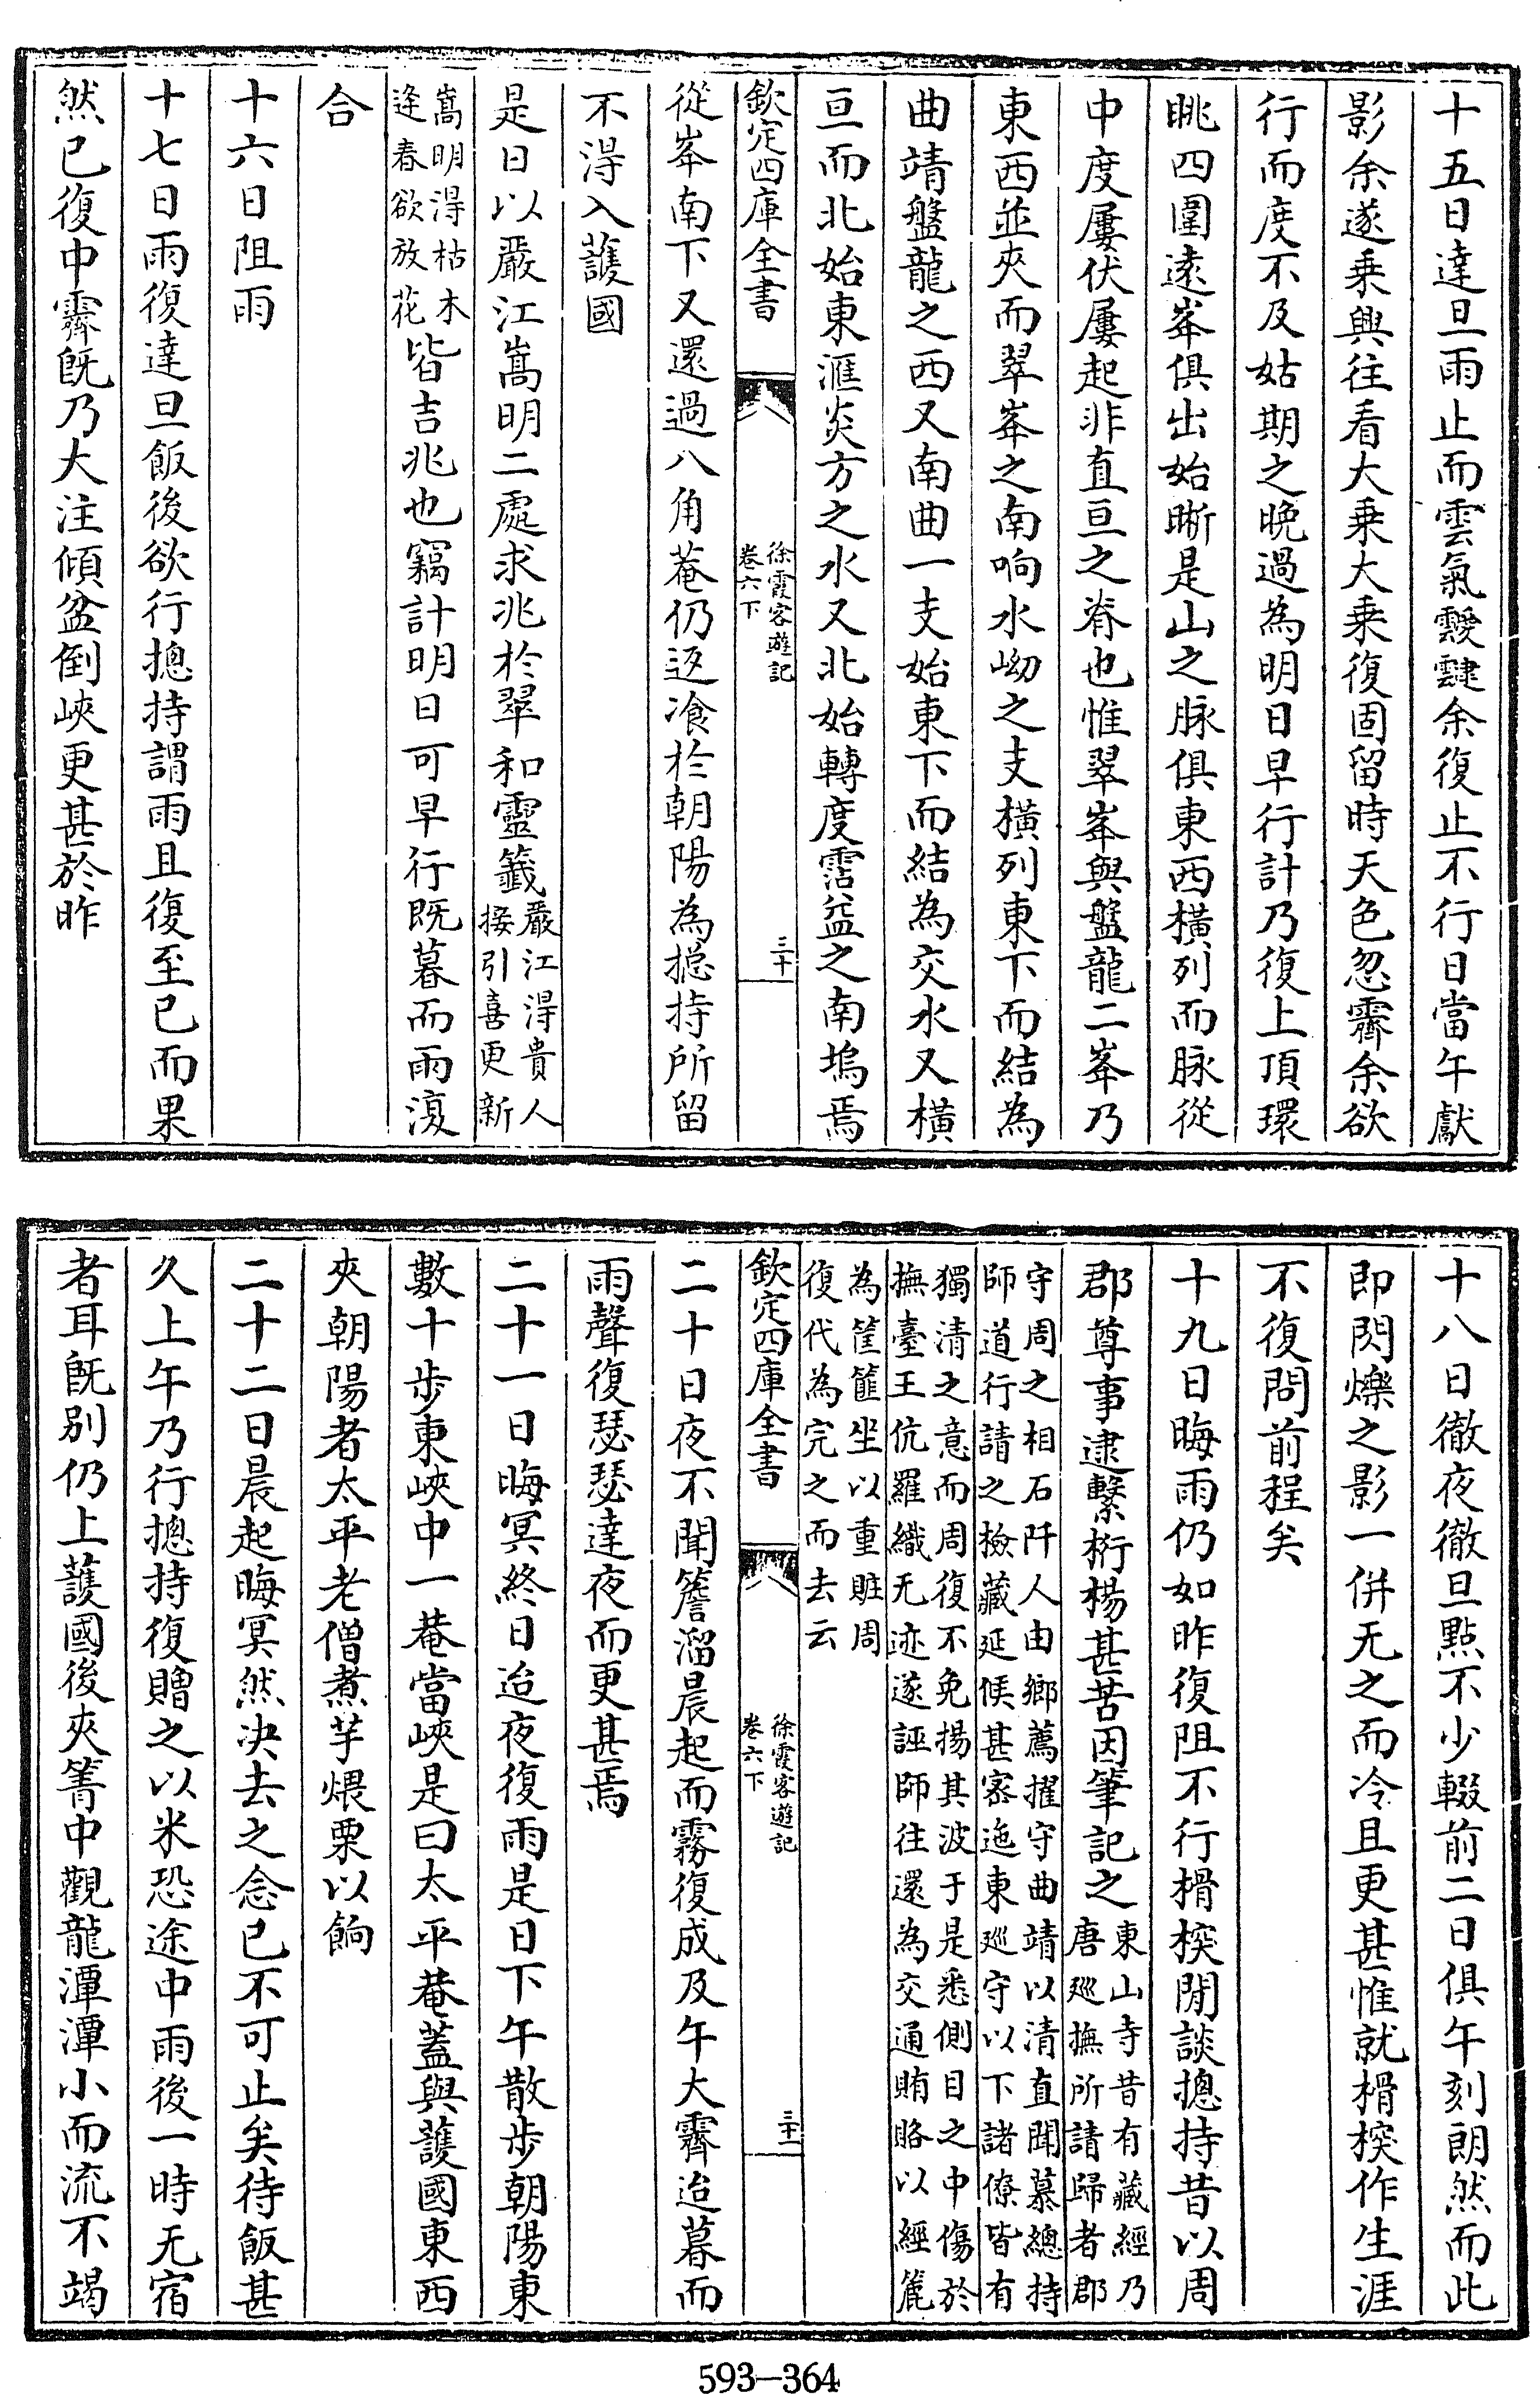 十五日達旦雨止而雲氣靉靆余復止不行日當午獻
影余遂乗興往看大乗大乗復固留時天色忽霽余欲
行而度不及姑期之晩過為明日早行計乃復上頂環
眺四圍遠峯俱出始晰是山之脉俱東西横列而脉從
中度屢伏屢起非直亘之脊也惟翠峯與盤龍二峯乃
東西並夾而翠峯之南响水坳之支横列東下而結為
曲靖盤龍之西又南曲一支始東下而結為交水又横
亘而北始東滙炎方之水又北始轉度霑益之南塢焉
欽定四庫全書
徐霞客遊記
卷六下
三十
從峯南下又還過八角菴仍返飡於朝陽為摠持所留
不得入護國
是日以嚴江嵩明二處求兆於翠和靈籤嚴江得貴人
接引喜更新
嵩明得枯木
逢春欲放花皆吉兆也竊計明日可早行既暮而雨復
合
十六日阻雨
十七日雨復達旦飯後欲行摠持謂雨且復至已而果
然已復中霽旣乃大注傾盆倒峽更甚於昨
十八日徹夜徹旦點不少輟前二日俱午刻朗然而此
即閃爍之影一併无之而冷且更甚惟就榾柮作生涯
不復問前程矣
十九日晦雨仍如昨復阻不行榾柮閒談摠持昔以周
郡尊事逮繫桁楊甚苦因筆記之東山寺昔有藏經乃
唐廵撫所請歸者郡
守周之相石阡人由鄉薦擢守曲靖以清直聞慕總持
師道行請之檢藏延候甚密迤東廵守以下諸僚皆有
獨清之意而周復不免揚其波于是悉側目之中傷於
撫臺王伉羅織无迹遂誣師往還為交通賄賂以經簏
為筐篚坐以重賍周
復代為完之而去云
欽定四庫全書
徐霞客遊記
卷六下
三十一
二十日夜不聞簷溜晨起而霧復成及午大霽迨暮而
雨聲復瑟瑟達夜而更甚焉
二十一日晦冥終日迨夜復雨是日下午散步朝陽東
數十步東峽中一菴當峽是曰太平菴蓋與護國東西
夾朝陽者太平老僧煮芋煨栗以餉
二十二日晨起晦冥然决去之念已不可止矣待飯甚
久上午乃行摠持復贈之以米恐途中雨後一時无宿
者耳旣别仍上護國後夾箐中觀龍潭潭小而流不竭
593-364